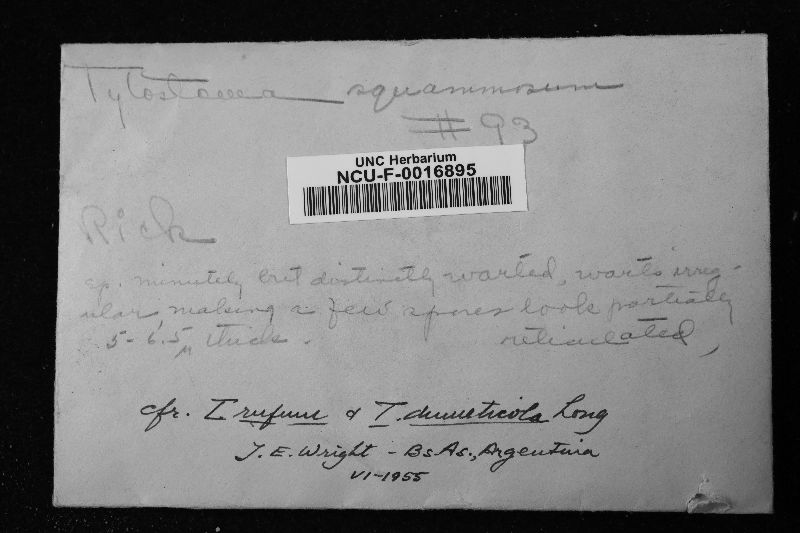 Tylostoma squammosum
# 93
UNC Herbarium
NCU-F-0016895
Rick
sp. minutely but distinctly warted, warts irreg-
ular, making a few spores look partially
5-6.5 µ thick. reticulated,
cfr. T. rufum & T. dumeticola Long
J. E. Wright - Bs As., Argentina
VI-1955